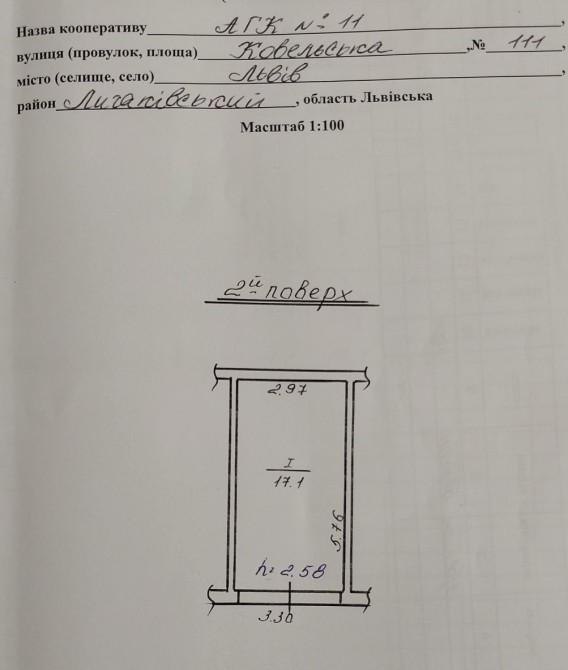 Назва кооперативу АГК №11,
вулиця (провулок, площа) Ковельська, № 111,
місто (селище, село) Львів,
район Личаківський, область Львівська
Масштаб 1:100
2й поверх
2.97
I
17.1
5.76
h=2.58
3.30